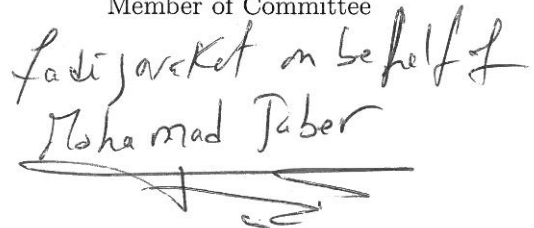 Member of Committee
fadi zaraket on behalf of
Mohamad Jaber